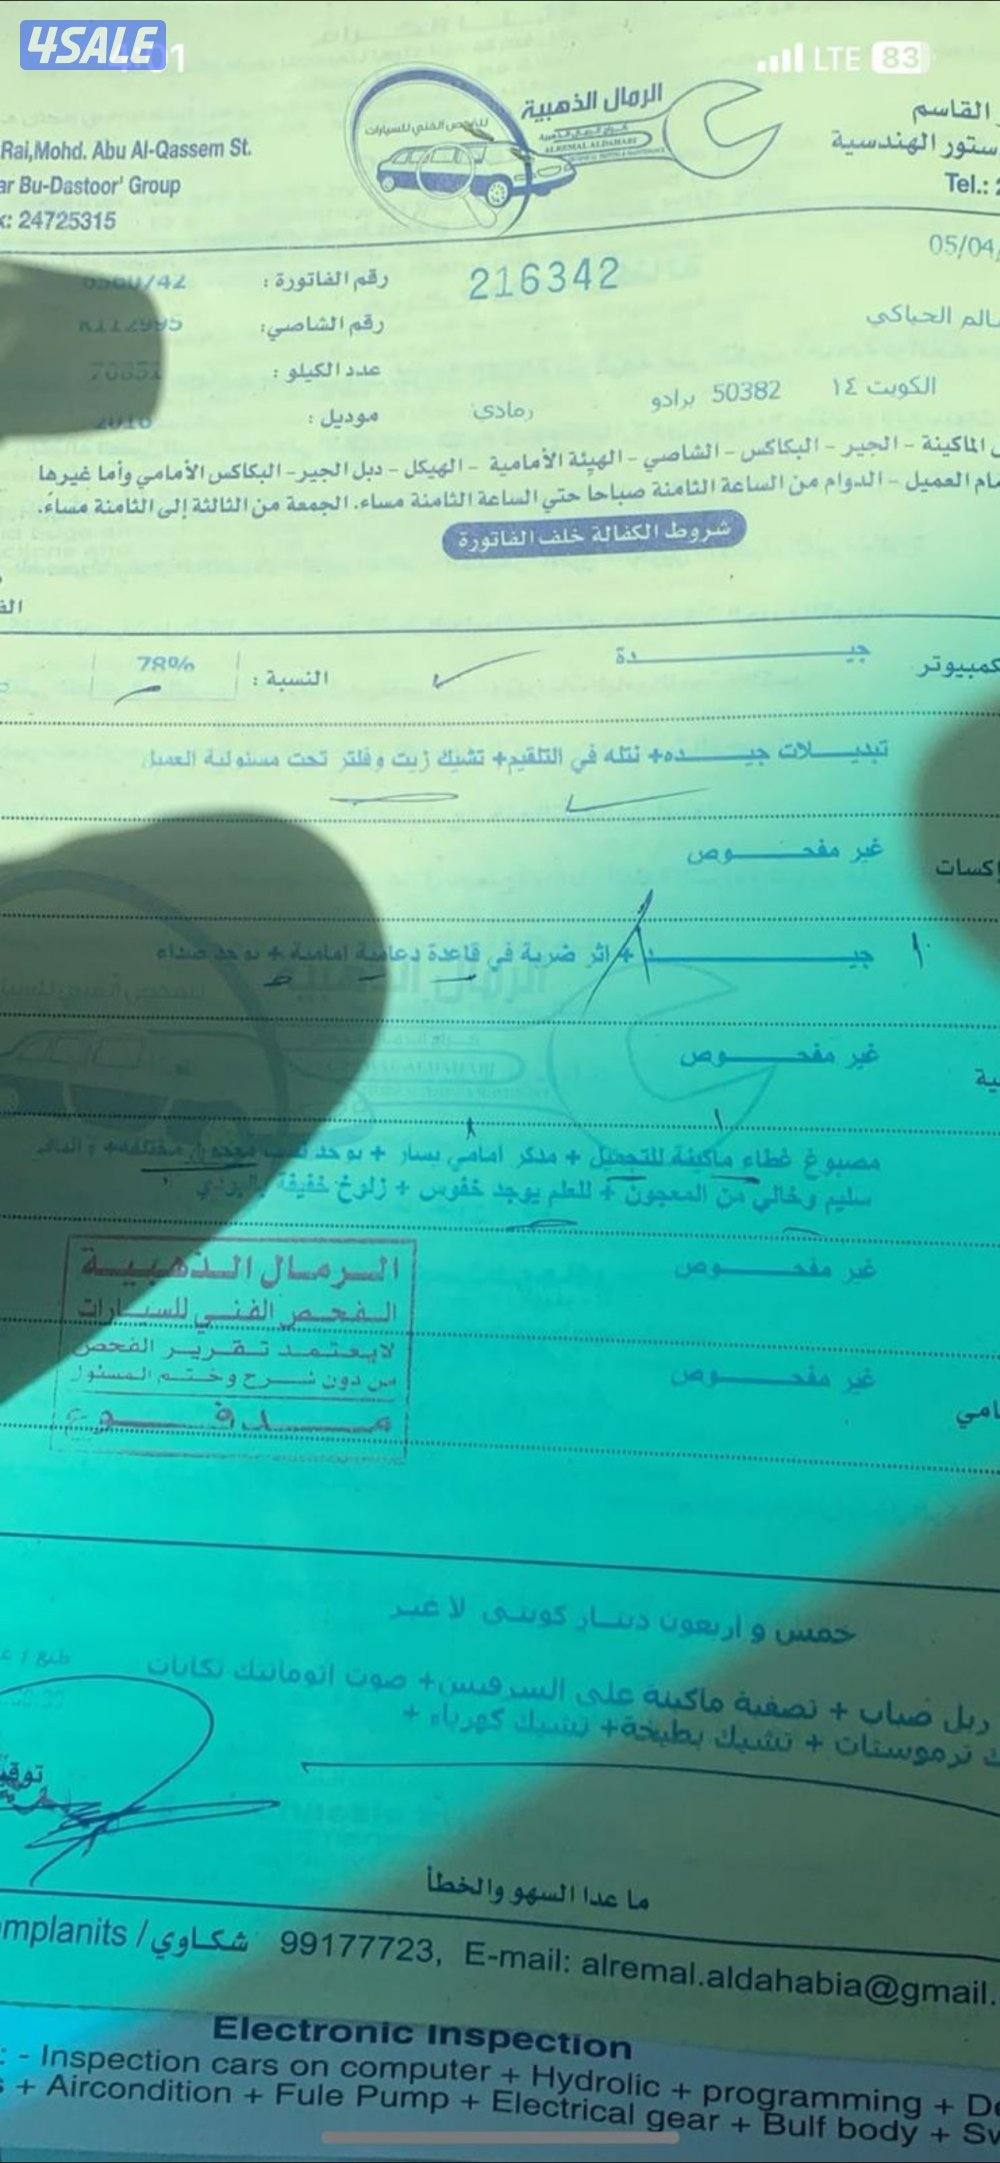 4SALE
LTE 83
القاسم
الرمال الذهبية
للفحص الفني للسيارات
ALREMAL ALDAHABI
Rai,Mohd. Abu Al-Qassem St.
ستور الهندسية
ar Bu-Dastoor' Group
Tel.:
x: 24725315
05/04/
216342
رقم الفاتورة :
رقم الشاصي:
سالم الحباكي
عدد الكيلو :
الكويت ١٤ 50382 برادو رمادي
موديل :
الماكينة - الجير - البكاكس - الشاصي - الهيئة الأمامية - الهيكل - دبل الجير - البكاكس الأمامي وأما غيرها
مام العميل - الدوام من الساعة الثامنة صباحا حتي الساعة الثامنة مساء. الجمعة من الثالثة إلى الثامنة مساءً.
شروط الكفالة خلف الفاتورة
كمبيوتر جيـــدة النسبة : 78%
تبديلات جيـــده+ نتله في التلقيم+ تشيك زيت وفلتر تحت مسئولية العميل
كسات غير مفحـــوص
جيـــد + اثر ضربة في قاعدة دعامية امامية + يوجد صداء
ية غير مفحـــوص
مصبوغ غطاء ماكينة للتجميل + مدكر امامي يسار + يوجد معجون مختلفه+ و
سليم وخالي من المعجون + للعلم يوجد خفوس + زلوخ خفيفة
غير مفحـــوص
الرمال الذهبية
الفحص الفني للسيارات
لايعتمد تقرير الفحص
من دون شرح وختم المسئول
مدفوع
امي غير مفحـــوص
خمس و اربعون دينار كويتى لا غير
ربل ضباب + تصفية ماكينة على السرفيس+ صوت اتوماتيك تكايات
ك ترموستات + تشيك بطيخة+ تشيك كهرباء +
توقي
ما عدا السهو والخطأ
mplanits / شكاوي 99177723, E-mail: alremal.aldahabia@gmail.
Electronic Inspection
: - Inspection cars on computer + Hydrolic + programming + De
s + Aircondition + Fule Pump + Electrical gear + Bulf body + Sw